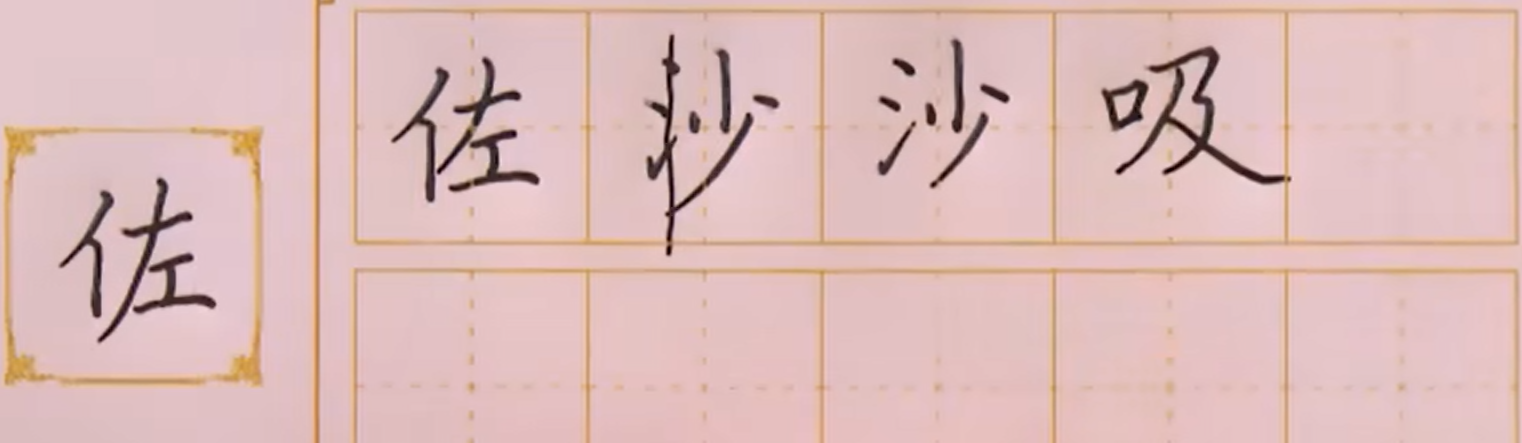 佐
佐 沙 沙 吸